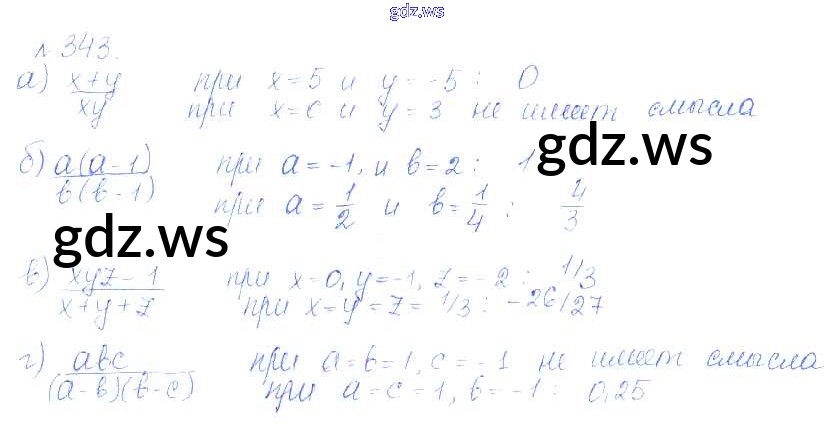 gdz.ws
№ 343.
а) x+y / xy при x=5 и y=-5: 0
при x=0 и y=3 не имеет смысла
gdz.ws
б) a(a-1) / b(b-1) при a=-1, и b=2: 1
при a=1/2 и b=1/4: 4/3
gdz.ws
в) xyz-1 / x+y+z при x=0, y=-1, z=-2: 1/3
при x=y=z=1/3: -26/27
г) abc / (a-b)(b-c) при a=b=1, c=-1 не имеет смысла
при a=c=1, b=-1: 0,25